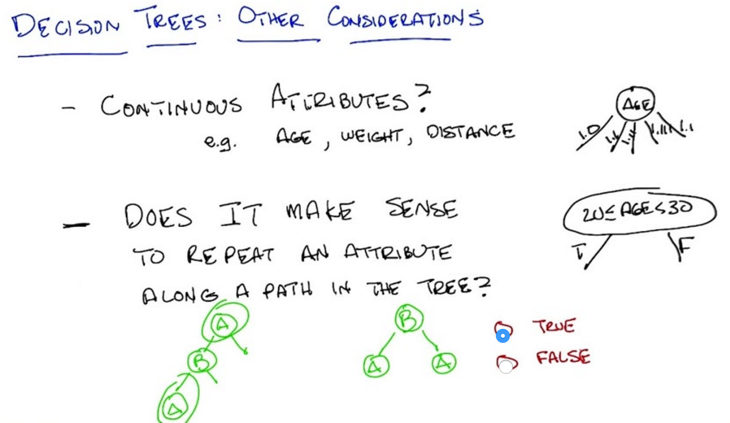 DECISION TREES: OTHER CONSIDERATIONS
- CONTINUOUS ATTRIBUTES?
e.g. AGE, WEIGHT, DISTANCE
AGE
1.0 1.1 1.11 1.111 1.1
- DOES IT MAKE SENSE
TO REPEAT AN ATTRIBUTE
ALONG A PATH IN THE TREE?
20≤AGE<30
T F
A
B
A
B
A A
TRUE
FALSE